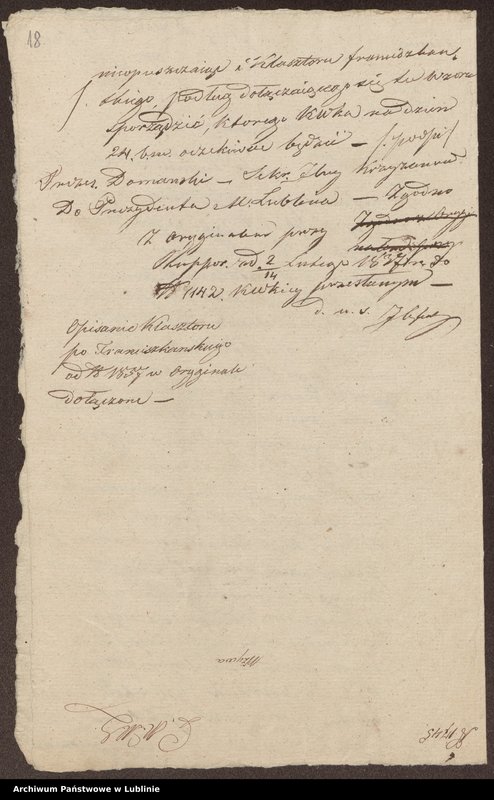 18.
nieopuszczaiąc i Klasztoru franciszkań
skiego, podług dołączaiącego się tu wzoru
sporządzić, którego KWka na dzień
24. b.m. oczekiwać będzie — /:podpis:/
Prezes. Domański — Sekr. Jlny Krzyżanowski
Do Prezydenta M. Lublina — Zgodno
Z Oryginałem przy
Rappor. od 2/14 Lutego 1837 r. do
N 1142 KWkiey przesłanym —
Opisanie Klasztoru
po Franciszkańskiego
od N 18 w Oryginale
dołączone —
N 1745
Archiwum Państwowe w Lublinie